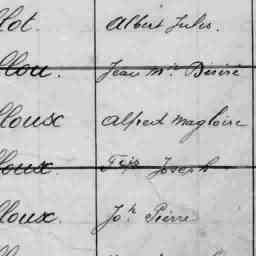 llot. Albert Jules.
llou. Jean Mie Désiré
lloux Alfred Magloire
lloux. Fçis Joseph
lloux. Jh Pierre